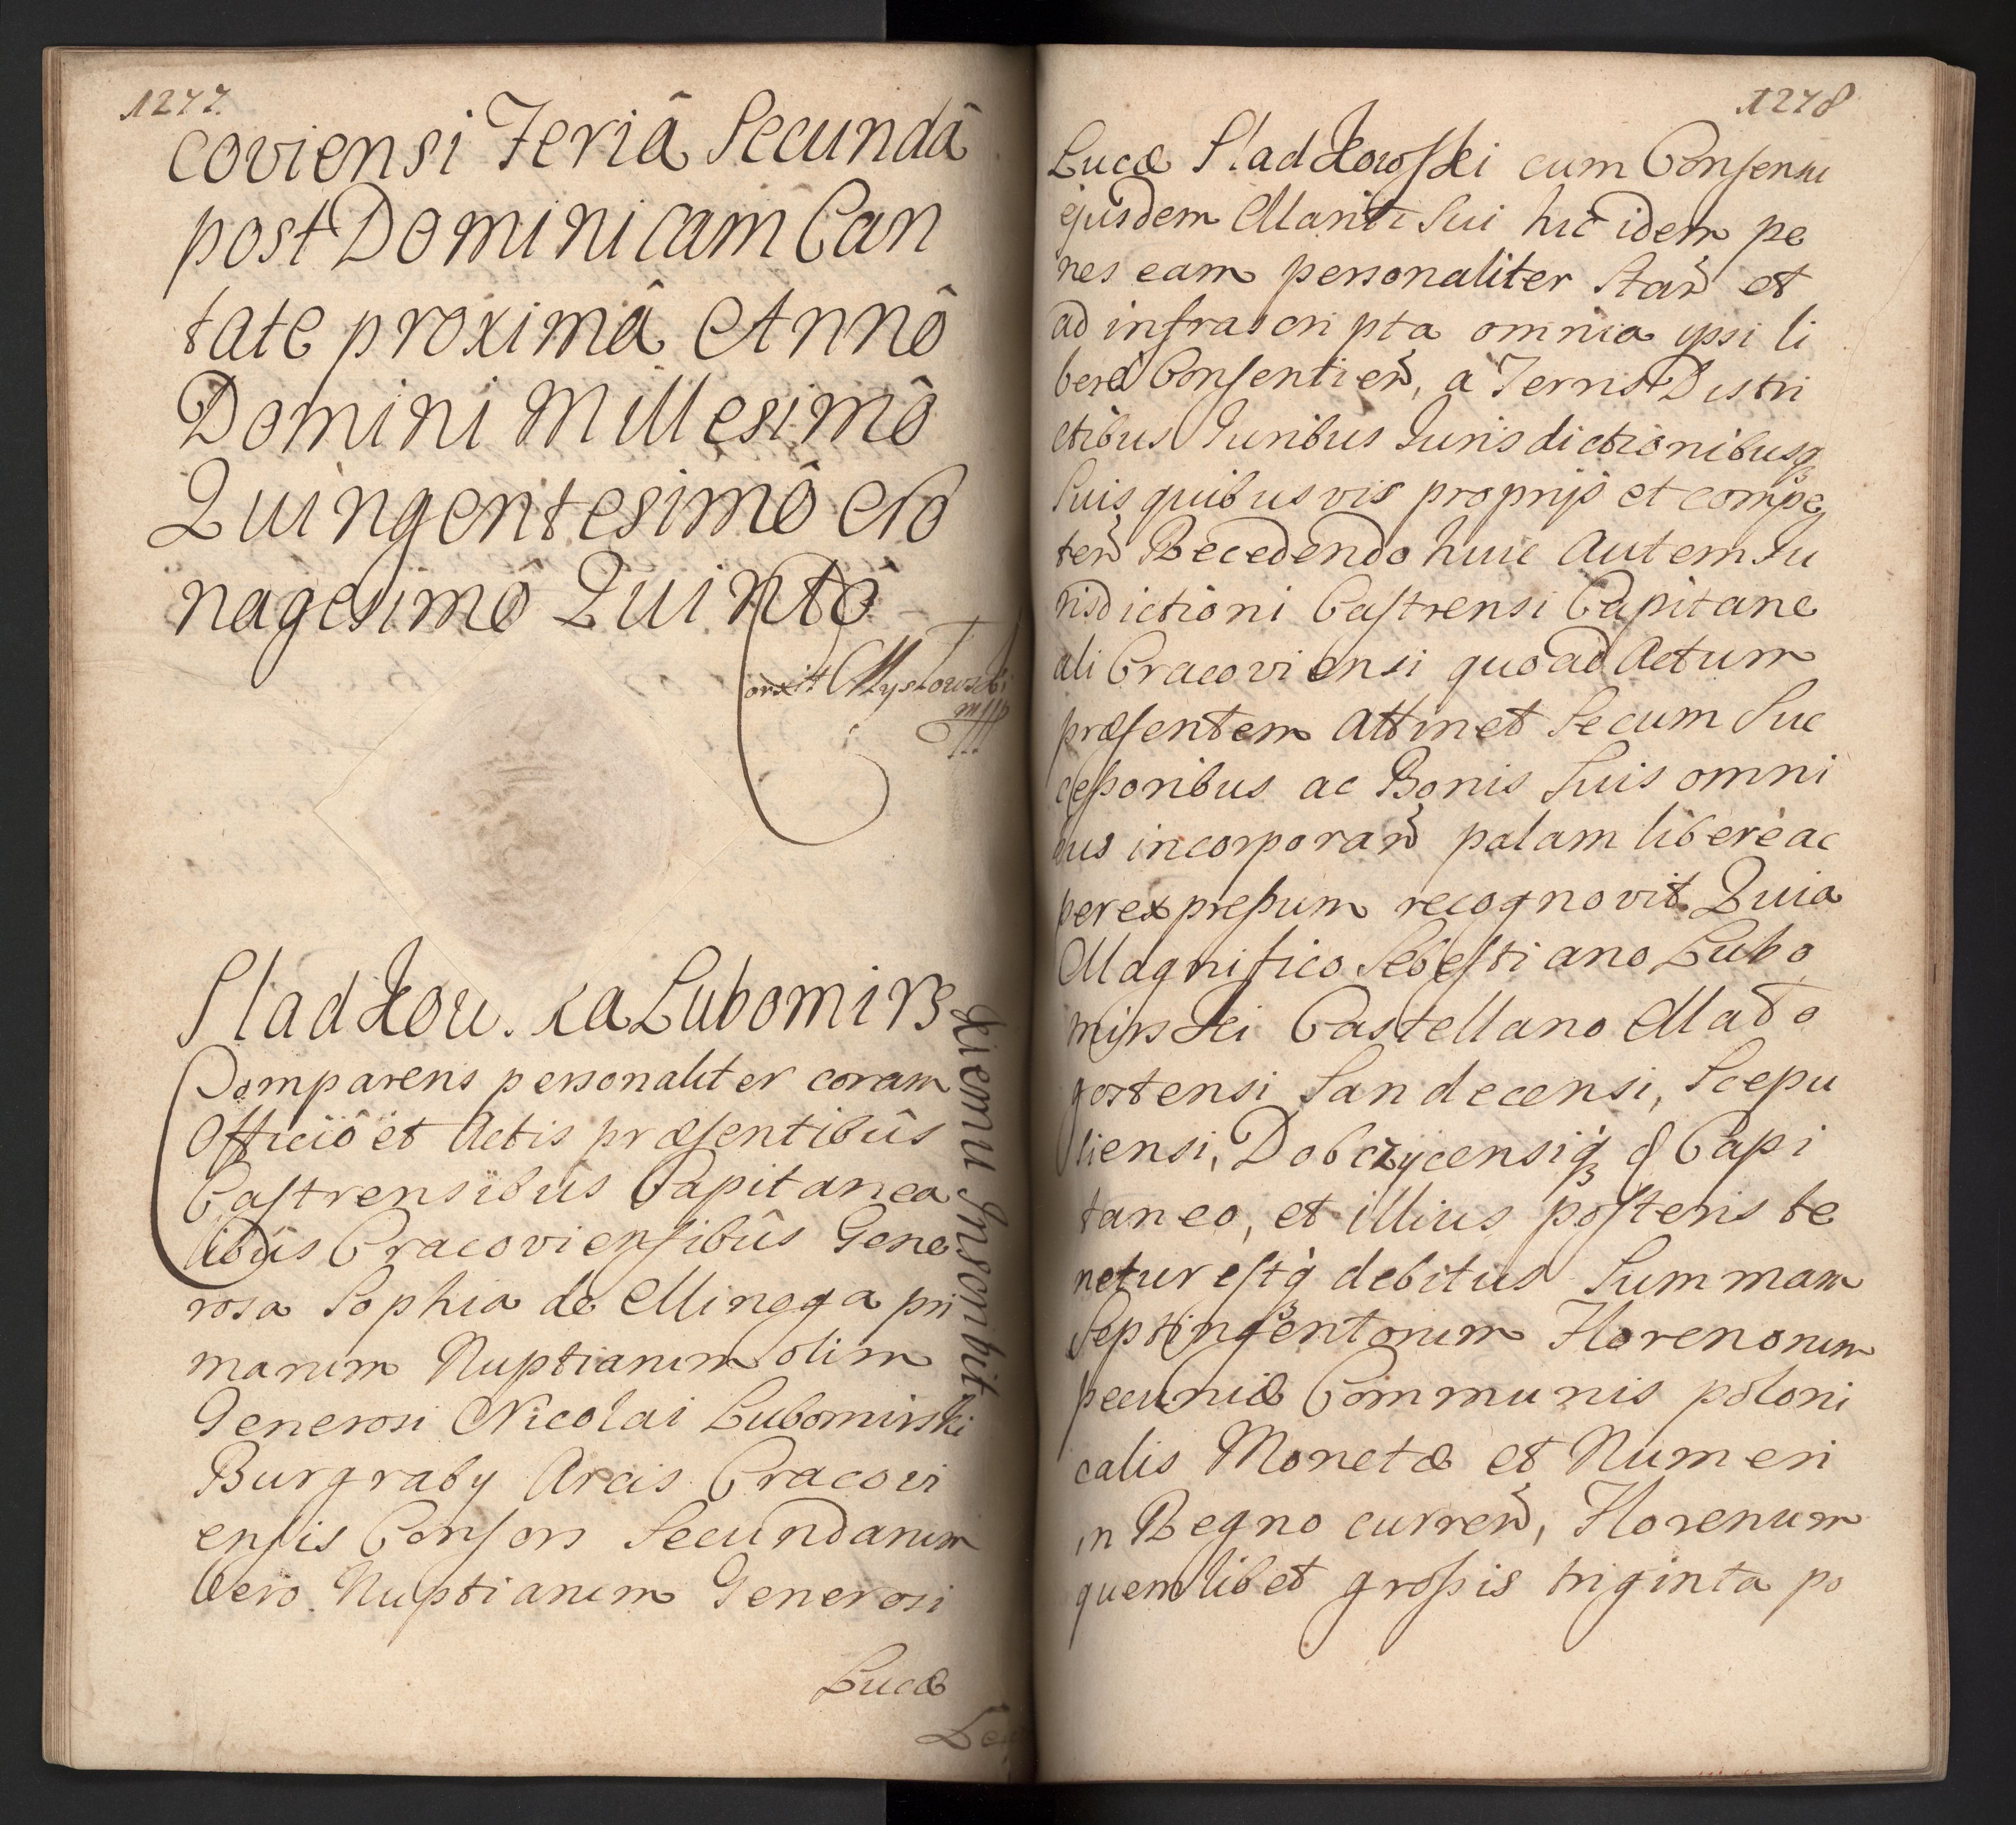 1277.
coviensi Feriâ Secundâ
post Dominicam Can
tate proximâ Annô
Domini Millesimô
Quingentesimô No
nagesimô Quintô
Sladkow. ka Lubomirs
kiemu Inscribit
Comparens personaliter coram
Officiô et Actis præsentibûs
Castrensibûs Capitanea
libûs Cracoviensibûs Gene
rosa Sophia de Minoga pri
marum Nuptiarum olim
Generosi Nicolai Lubomirski
Burgraby Arcis Cracovi
ensis Consors Secundarum
Vero Nuptiarum Generosi
Lucæ
1278
Lucæ Sladkowski cum Consensu
ejusdem Mariti Sui hic idem pe
nes eam personaliter stan et
ad infrascripta omnia ipsi li
berè Consentien, à Terris Distri
ctibus Juribus Jurisdictionibusq
Suis quibusvis proprijs et compe
ten Recedendo huic autem Ju
risdictioni Castrensi Capitane
ali Cracoviensi quo ad Actum
præsentem attinet Secum Suc
cessoribus ac Bonis Suis omni
bus incorporan palam liberè ac
per expressum recognovit Quia
Magnifico Sebestiano Lubo
mirski Castellano Mało
gostensi Sandecensi, Scepu
siensi, Dobczycensiq & Capi
taneo, et illius posteris te
netur estq debitus Summam
Septingentorum Florenorum
pecuniæ Communis poloni
calis Monetæ et Numeri
in Regno curren, Florenum
quemlibet grossis triginta po